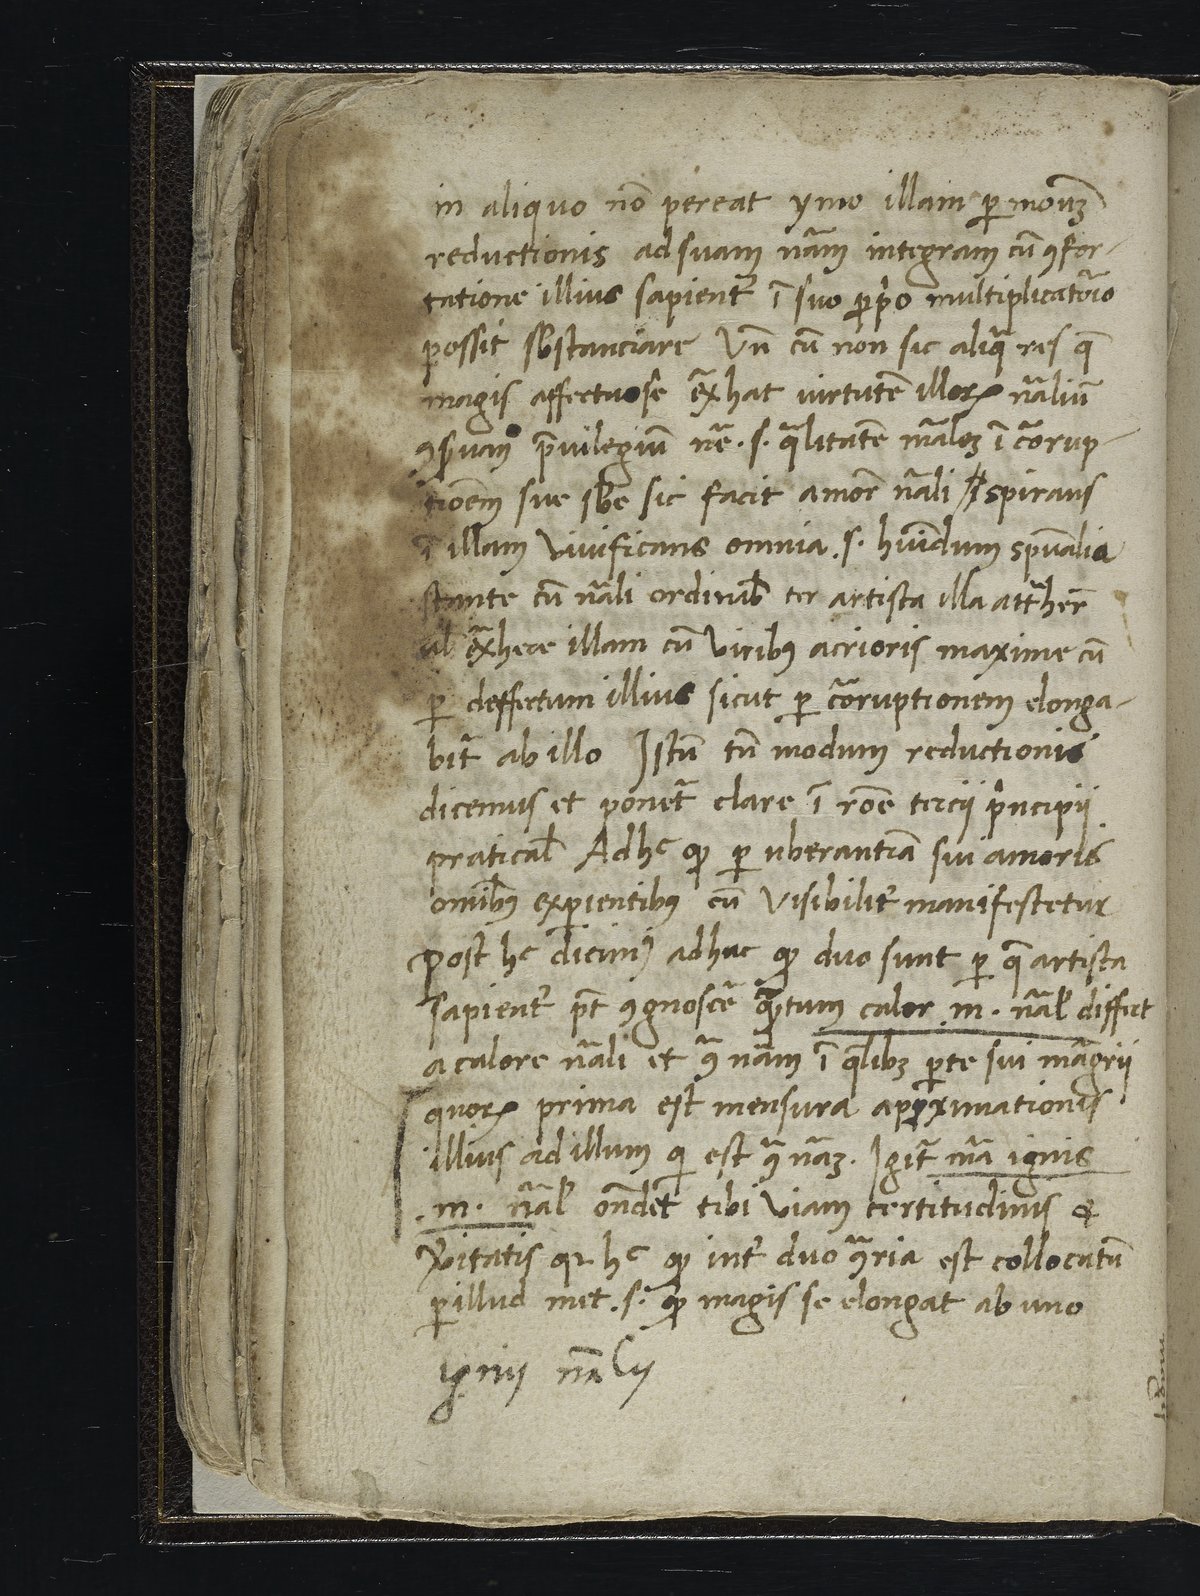 in aliquo nō pereat ymo illam ꝑ modūꝫ
reductionis ad suam nām integram cū ꝯfor-
tatione illius sapient̄ ī suo ꝓpo multiplicatōio
possit sb̄stanciare Vn̄ cū non sic aliq̄ res q̄
magis affectuose ex̄hat virtutē illoꝝ nāliū
p̄uilegiū nē .s. q̄litatē nāleꝫ ī corup-
tionem sue sb̄e sic facit amor̄ nāli īspirans
ī illam viuificans omnia .s. humidum spūalia
stante cū nāli ordinab̄ ter artista illa att̄her̄
ab ex̄here illam cū viribꝰ acrioris maxime cū
ꝑ deffectum illius sicut ꝑ coruptionem elonga-
bit̄ ab illo Istū tn̄ modum reductionis
dicemus et ponet̄ clare ī roē tercij prīncipij
pratical̄ Ad hᶜ ꝙ ꝑ uberantiā sui amoris
omībꝰ expientibꝰ cū visibilit̄ manifestetur
Post hᶜ dicim̄ adhuc ꝙ duo sunt ꝑ q̄ artista
sapient̄ pt̄ ꝯgnoscē q̄ntum calor .īn. nāl̄ differt
a calore nāli et ꝯ̄ nām ī q̄libꝫ ꝑte sui māgrij
quoꝝ prima est mensura approximationis
illius ad illum qͥ est ꝯ̄ nāꝫ. Igit̄ mā ignis
.īn. nāl̄ on̄det tibi viam certitudinis &
v̄itatis qꝛ hᶜ ꝙ int̄ duo ꝯ̄ria est collocatū
ꝑ illud met .s. ꝙ magis se elongat ab uno
ignij nālij